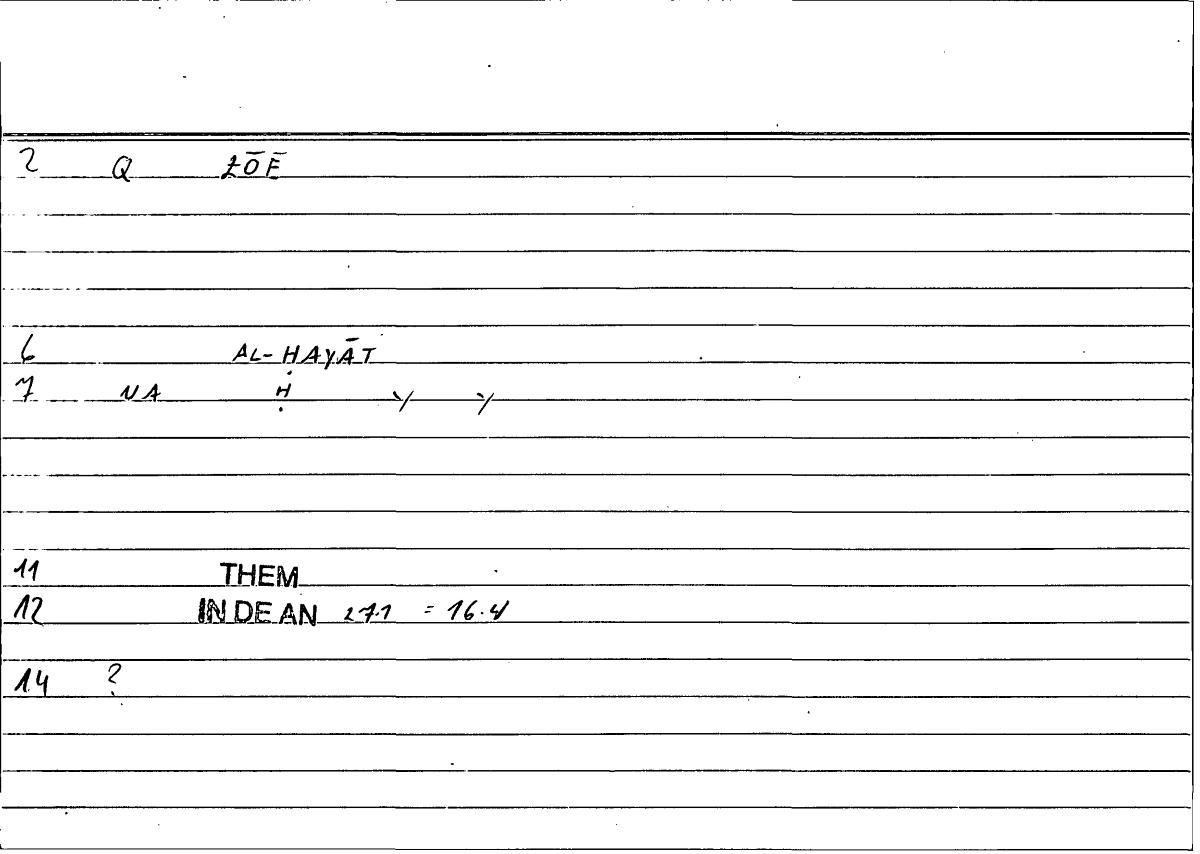 2 Q ZŌĒ
6 AL-ḤAYĀT
7 NA Ḥ
11 THEM
12 IN DE AN 27.1 = 16.4
14 ?